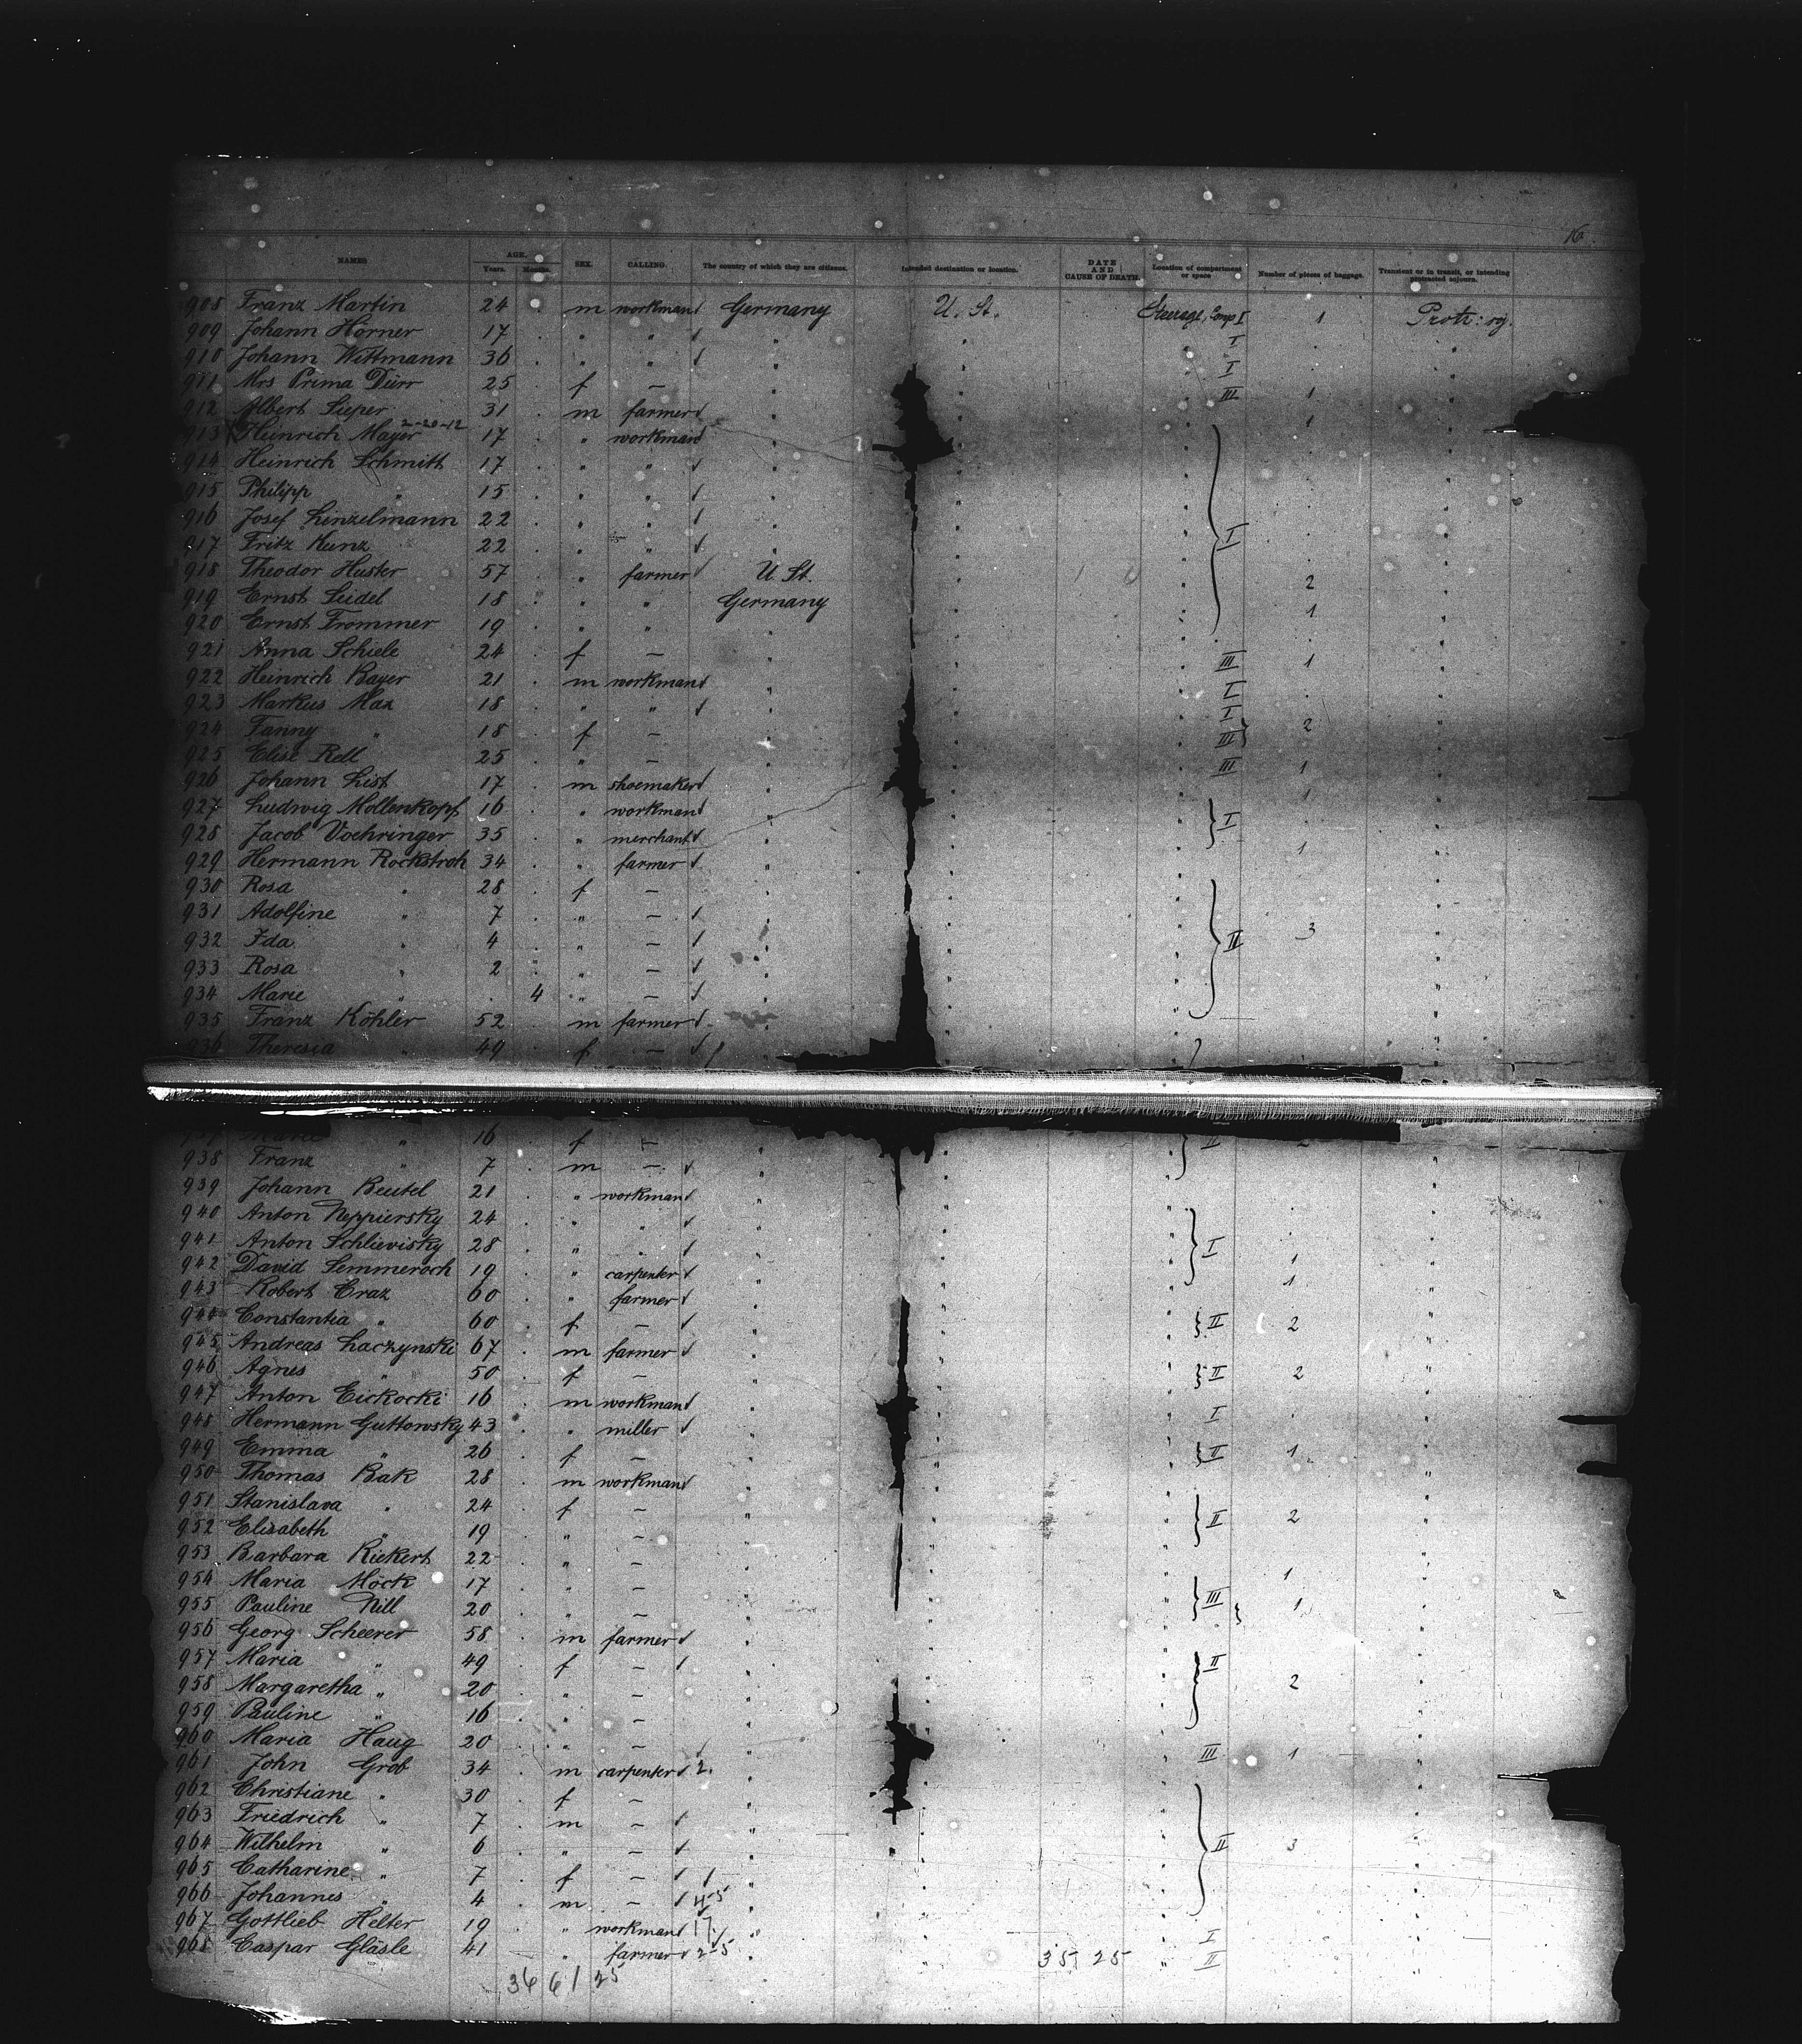 16
NAMES AGE. Years. Months. SEX. CALLING. The country of which they are citizens. Intended destination or location. DATE AND CAUSE OF DEATH. Location of compartment or space Number of pieces of baggage. Transient or in transit, or intending protracted sojourn.
908 Franz Martin 24 . m workman Germany U. St. Steerage, Comp I 1 Protr: soj.
909 Johann Horner 17 . " " " " " I "
910 Johann Wittmann 36 . " " " " " I "
911 Mrs Prima Dürr 25 . f — " " " III 1 "
912 Albert Sieper 31 . m farmer " " " 1 "
2-20-12
913 X Heinrich Mayer 17 . " workman " " " "
914 Heinrich Schmitt 17 . " " " " " "
915 Philipp " 15 . " " " " " "
916 Josef Linzelmann 22 . " " " " " "
917 Fritz Kunz 22 . " " " " " I "
918 Theodor Huster 57 . " farmer U. St. " " 2 "
919 Ernst Seidel 18 . " " Germany " " 1 "
920 Ernst Frommer 19 . " " " " " "
921 Anna Schiele 24 . f — " " " III 1 "
922 Heinrich Bayer 21 . m workman " " " I "
923 Markus Max 18 . " " " " " I "
924 Fanny " 18 . f — " " " III 2 "
925 Elise Rell 25 . " — " " " III 1 "
926 Johann List 17 . m shoemaker " " " 1 "
927 Ludwig Mollenkopf 16 . " workman " " " I "
928 Jacob Voehringer 35 . " merchant " " " 1 "
929 Hermann Rockstroh 34 . " farmer " " " "
930 Rosa " 28 . f — " " " "
931 Adolfine " 7 . " — " " " "
932 Ida " 4 . " — " " " II 3 "
933 Rosa " 2 . " — " " " "
934 Marie " . 4 " — " " " "
935 Franz Köhler 52 . m farmer " " "
936 Theresia " 49 . f —
Marie " 16 . f — " " " II "
938 Franz " 7 . m — " " " "
939 Johann Beutel 21 . " workman " " " "
940 Anton Neppiersky 24 . " " " " " "
941 Anton Schlievisky 28 . " " " " " I "
942 David Semmeroch 19 . " carpenter " " " 1 "
943 Robert Craz 60 . " farmer " " " 1 "
944 Constantia " 60 . f — " " " II 2 "
945 Andreas Laczynski 67 . m farmer " " " "
946 Agnes " 50 . f — " " " II 2 "
947 Anton Eickocki 16 . m workman " " " I "
948 Hermann Guttowsky 43 . " miller " " " "
949 Emma " 26 . f — " " " II 1 "
950 Thomas Bak 28 . m workman " " " "
951 Stanislava " 24 . f — " " " II 2 "
952 Elisabeth " 19 . " — " " " "
953 Barbara Riekert 22 . " — " " " 1 "
954 Maria Möck 17 . " — " " " III "
955 Pauline Nill 20 . " — " " " 1 "
956 Georg Scheerer 58 . m farmer " " " "
957 Maria " 49 . f — " " " II "
958 Margaretha " 20 . " — " " " 2 "
959 Pauline " 16 . " — " " " "
960 Maria Haug 20 . " — " " " III 1 "
961 John Grob 34 . m carpenter 2. " " " "
962 Christiane " 30 . f — " " " "
963 Friedrich " 7 . m — " " " "
964 Wilhelm " 6 . " — " " " II 3 "
965 Catharine " 7 . f — " " " "
966 Johannes " 4 . m — 45 " " " "
967 Gottlieb Helter 19 . " workman 17 " " " I "
968 Caspar Gläsle 41 . " farmer 2-5 " " 35 25 " II "
36 61 25